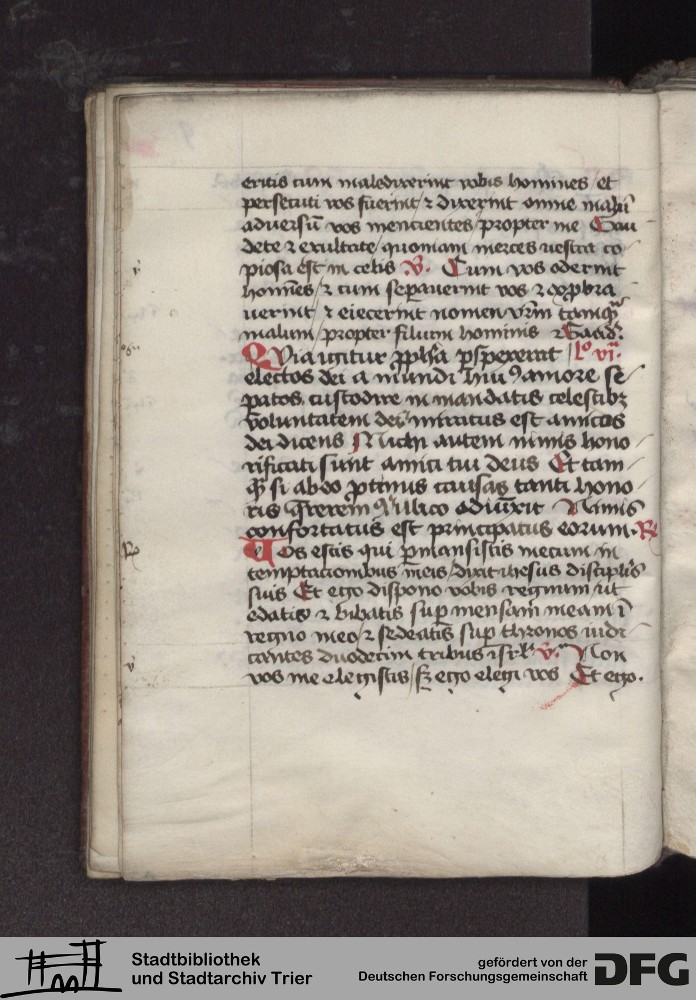 eritis cum maledixerint vobis homines / et
persecuti vos fuerint / ⁊ dixerint omne malū
adversū vos mencientes / propter me Gau
dete ⁊ exultate / quoniam merces vestra co
piosa est in celis V̷. Cum vos oderint
homīes / ⁊ cum separaverint vos ⁊ exprobra
verint / ⁊ eiecerint nomen vr̄m tamq̄
malum / propter filium hominis ⁊ Gaud.
QVia igitur lo vi.
electos dei a mundi amore se
patos, custodire in mandatis celestibꝫ
voluntatem dei, miratus est amicos
dei dicens Michi autem nimis hono
rificati sunt amici tui deus Et tam
q̄ si ab eo ꝓtinus causas tanti hono
ris q̄rerem ilico adiūxit Nimis
confortatus est principatus eorum. R̷
Vos estis qui ꝑmansistis mecum in
temptacionibus meis / dixit ihesus discipulis
suis Et ego dispono vobis regnum / ut
edatis ⁊ bibatis sup mensam meam ī
regno meo / ⁊ sedeatis sup thronos iudi
cantes duodecim tribus isrl v. Non
vos me elegistis / sꝫ ego elegi vos Et ego.
Stadtbibliothek
und Stadtarchiv Trier
gefördert von der
Deutschen Forschungsgemeinschaft
DFG